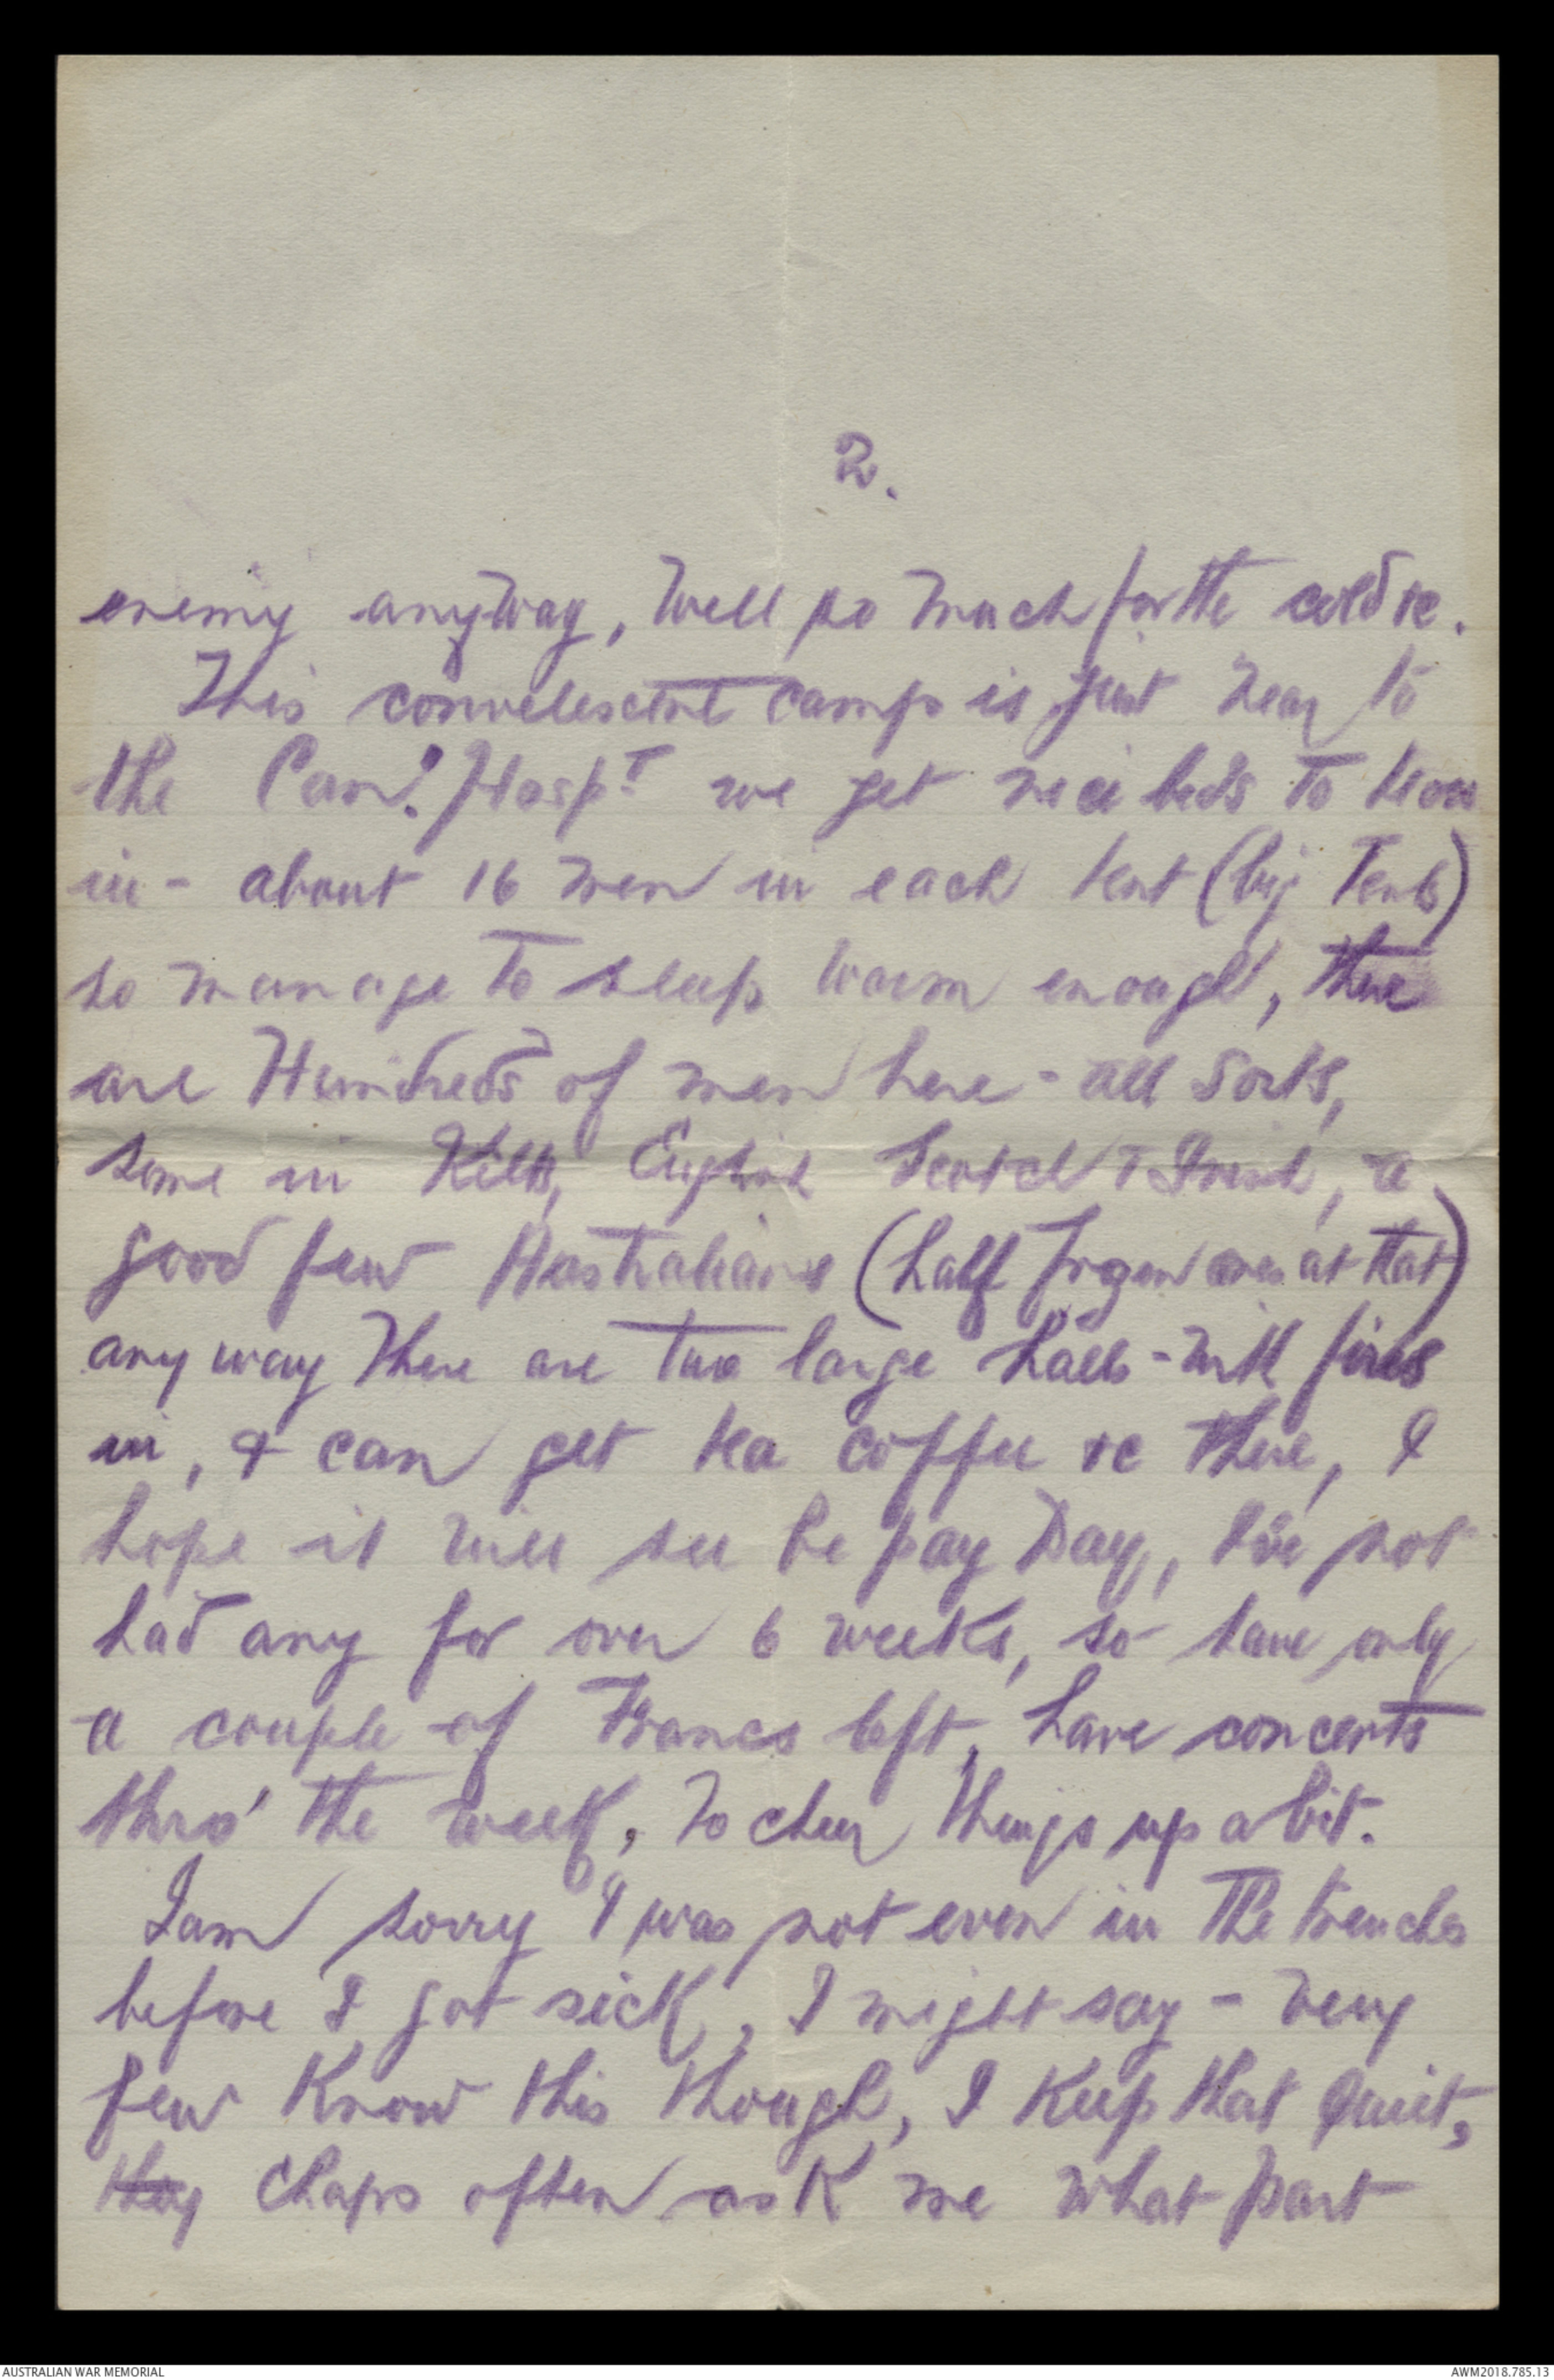 2.
enemy anyway, Well so much for the cold &c.
This convelescent camp is just near to
the Can. Hosp.t we get nice beds to
in - about 16 men in each tent (big Tents)
so manage to sleep warm enough, there
are Hundreds of men here - all sorts,
some in Kilts, English Scotch & Irish, a
good few Australians (half frozen ones at that)
any way there are two large halls - with fires
in, & can get tea coffee &c there, I
hope it will be pay Day, I've not
had any for over 6 weeks, so have only
a couple of Francs left, have concerts
thro' the week, To cheer things up a bit.
I am sorry I was not even in the trenches
before I got sick, I might say - very
few Know this though, I Keep that Quiet,
they Chaps often ask me what part
AUSTRALIAN WAR MEMORIAL
AWM2018.785.13